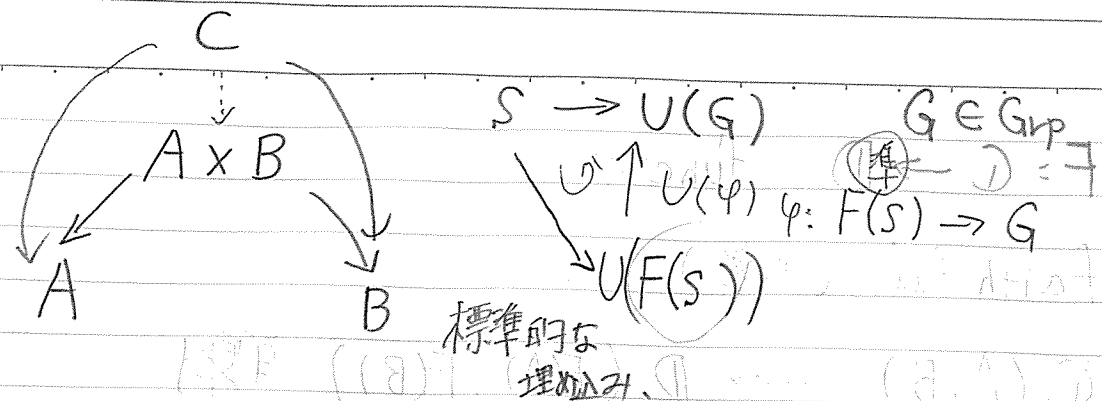 C
A × B
A
B
S → U(G)
G ∈ Grp
準
U(φ)
φ: F(S) → G
U(F(S))
標準的な
埋め込み、